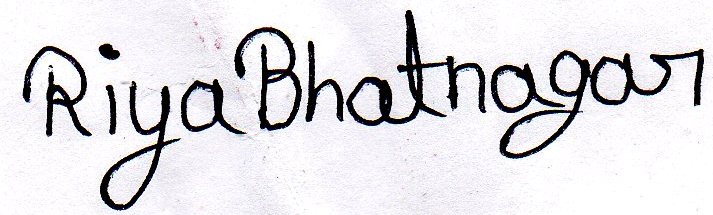 Riya Bhatnagar